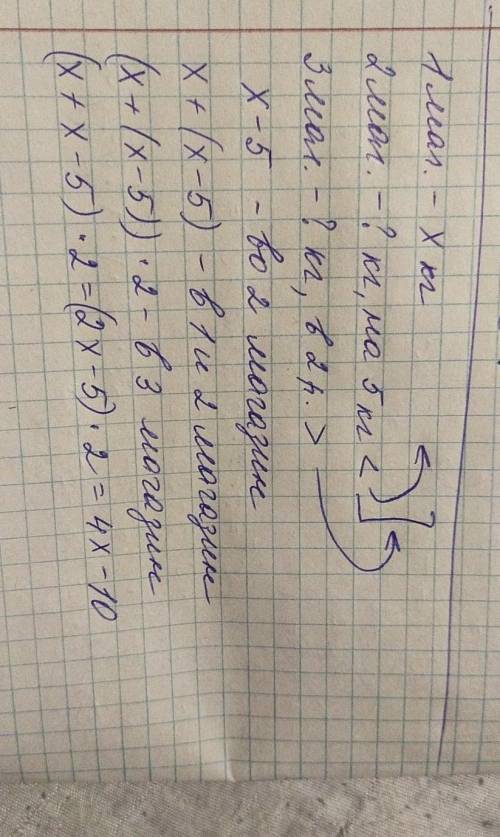 1 маг. - х кг
2 маг. - ? кг, на 5 кг <
3 маг. - ? кг, в 2 р. >
х - 5 - во 2 магазин
х + (х - 5) - в 1 и 2 магазин
(х + (х - 5)) · 2 - в 3 магазин
(х + х - 5) · 2 = (2х - 5) · 2 = 4х - 10